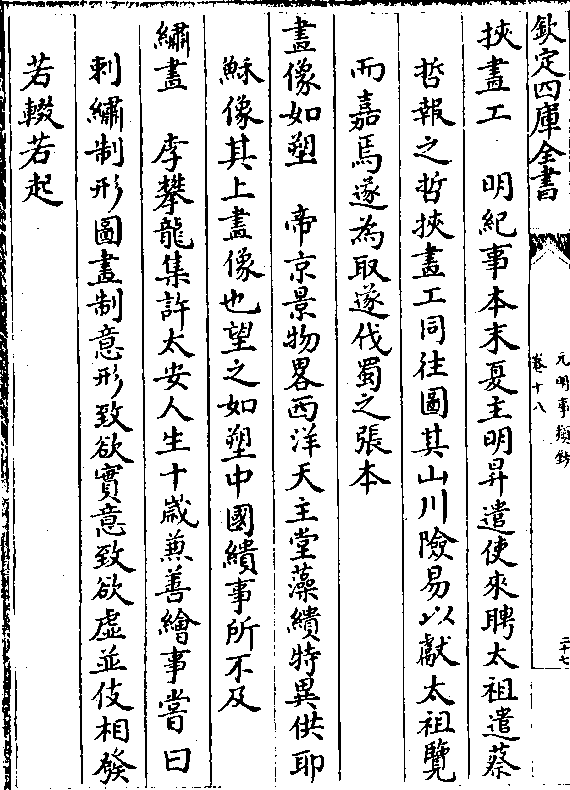 欽定四庫全書
元明事類鈔
卷十八
二十七
挾畫工　明紀事本末夏主明昇遣使來聘太祖遣蔡
哲報之哲挾畫工同往圖其山川險易以獻太祖覽
而嘉焉遂為取遂伐蜀之張本
畫像如塑　帝京景物畧西洋天主堂藻繢特異供耶
穌像其上畫像也望之如塑中國繢事所不及
繡畫　李攀龍集許太安人生十歲兼善繪事嘗曰
刺繡制形圖畫制意形致欲實意致欲虛並伎相發
若輟若起